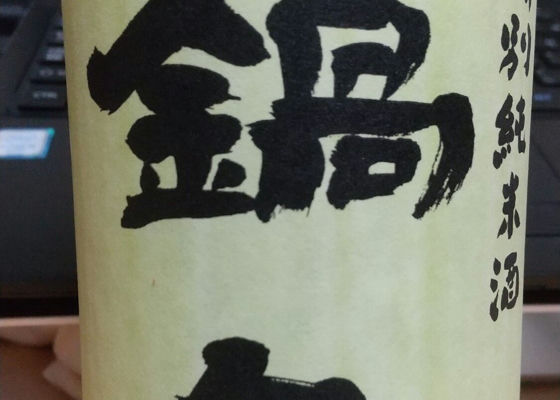 鍋
別純米酒